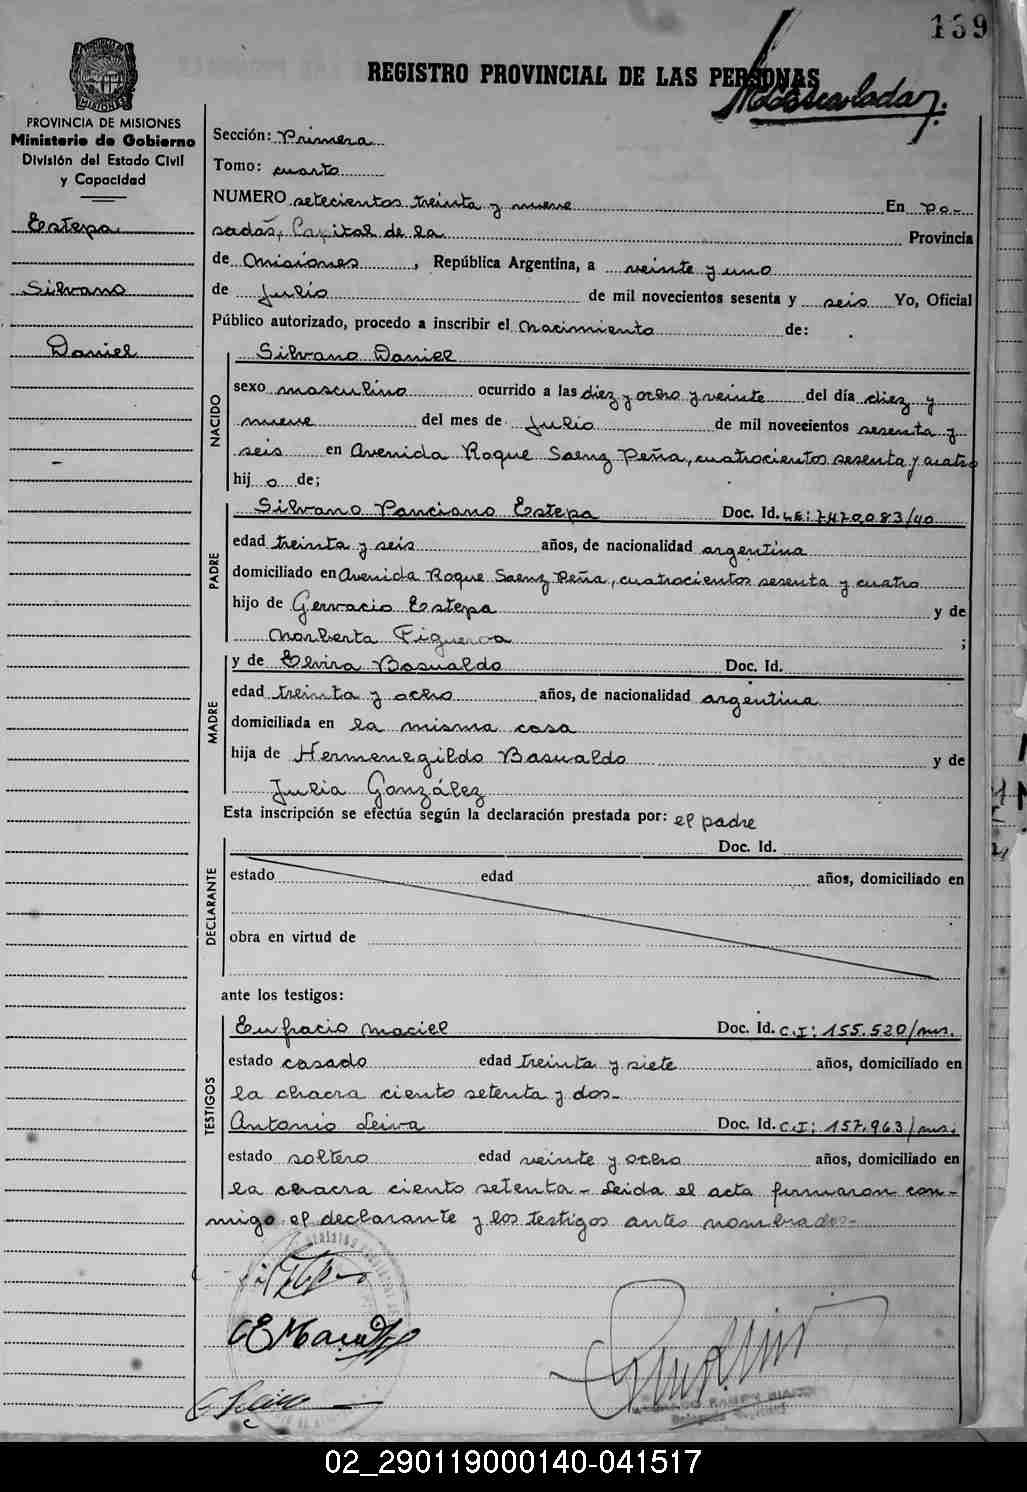 139
REGISTRO PROVINCIAL DE LAS PERSONAS
MISIONES
PROVINCIA DE MISIONES
Ministerio de Gobierno
División del Estado Civil
y Capacidad
Estepa
Silvano
Daniel
Sección: Primera
Tomo: cuarto
NUMERO setecientos treinta y nueve En Po-
sadas, Capital de la Provincia
de Misiones, República Argentina, a veinte y uno
de Julio de mil novecientos sesenta y seis Yo, Oficial
Público autorizado, procedo a inscribir el nacimiento de:
NACIDO
Silvano Daniel
sexo masculino ocurrido a las diez y ocho y veinte del día diez y
nueve del mes de Julio de mil novecientos sesenta y
seis en Avenida Roque Saenz Peña, cuatrocientos sesenta y cuatro
hij o de;
PADRE
Silvano Ponciano Estepa Doc. Id. L.E: 7.470.083/40
edad treinta y seis años, de nacionalidad argentina
domiciliado en Avenida Roque Saenz Peña, cuatrocientos sesenta y cuatro
hijo de Gervacio Estepa y de
Norberta Figueroa ;
MADRE
y de Elvira Basualdo Doc. Id.
edad treinta y ocho años, de nacionalidad argentina
domiciliada en la misma casa
hija de Hermenegildo Basualdo y de
Julia González
Esta inscripción se efectúa según la declaración prestada por: el padre
DECLARANTE
Doc. Id.
estado edad años, domiciliado en
obra en virtud de
ante los testigos:
TESTIGOS
Eufracio Maciel Doc. Id. C.I: 155.520/mis.
estado casado edad treinta y siete años, domiciliado en
la chacra ciento setenta y dos-
Antonio Leiva Doc. Id. C.I: 157.963/mis:
estado soltero edad veinte y ocho años, domiciliado en
la chacra ciento setenta- Leida el acta firmaron con-
migo el declarante y los testigos antes nombrados-
02_290119000140-041517